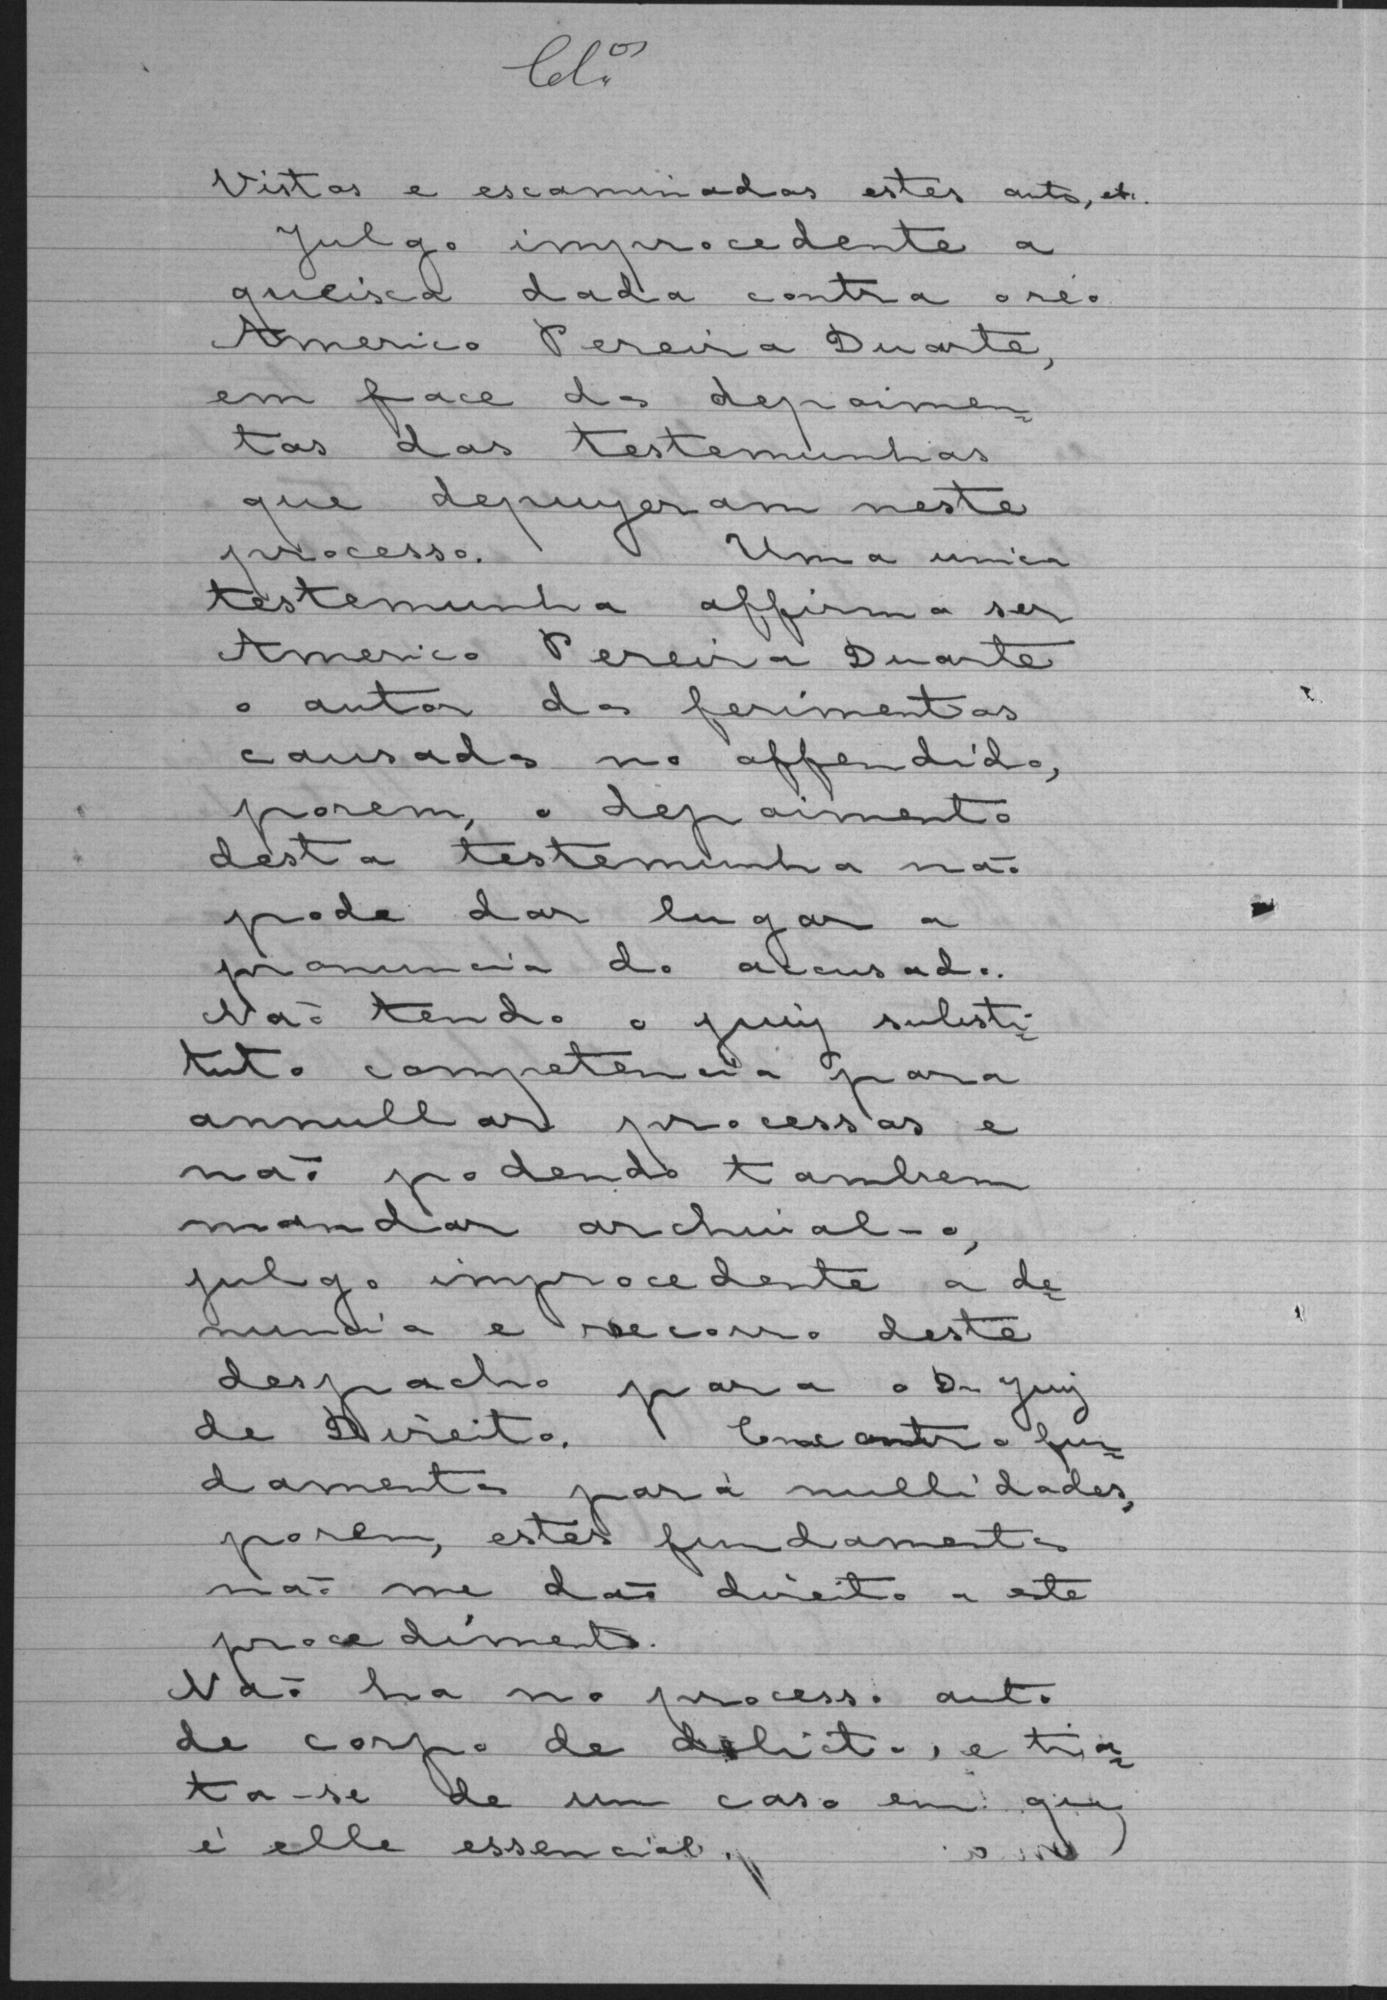 Cls.os
Vistos e escaminados estes autos, etc.
Julgo improcedente a
queisca dada contra o réo
Americo Pereira Duarte,
em face dos depoimen=
tos das testemunhas
que depuzeram neste
processo. Uma unica
testemunha affirma ser
Americo Pereira Duarte
o autor dos ferimentos
causados no offendido,
porem, o depoimento
desta testemunha não
pode dar lugar a
pronuncia do accusado.
Não tendo o juiz substi=
tuto competencia para
annullar processos e
não podendo tambem
mandar archival-o,
julgo improcedente a de=
nuncia e recorro deste
despacho para o Dr Juiz
de Direito. Encontro fun=
damentos para nullidades,
porem, estes fundamentos
não me dão direito a este
procedimento.
Não ha no processo auto
de corpo de delicto, e tra=
ta-se de um caso em que
é elle essencial.